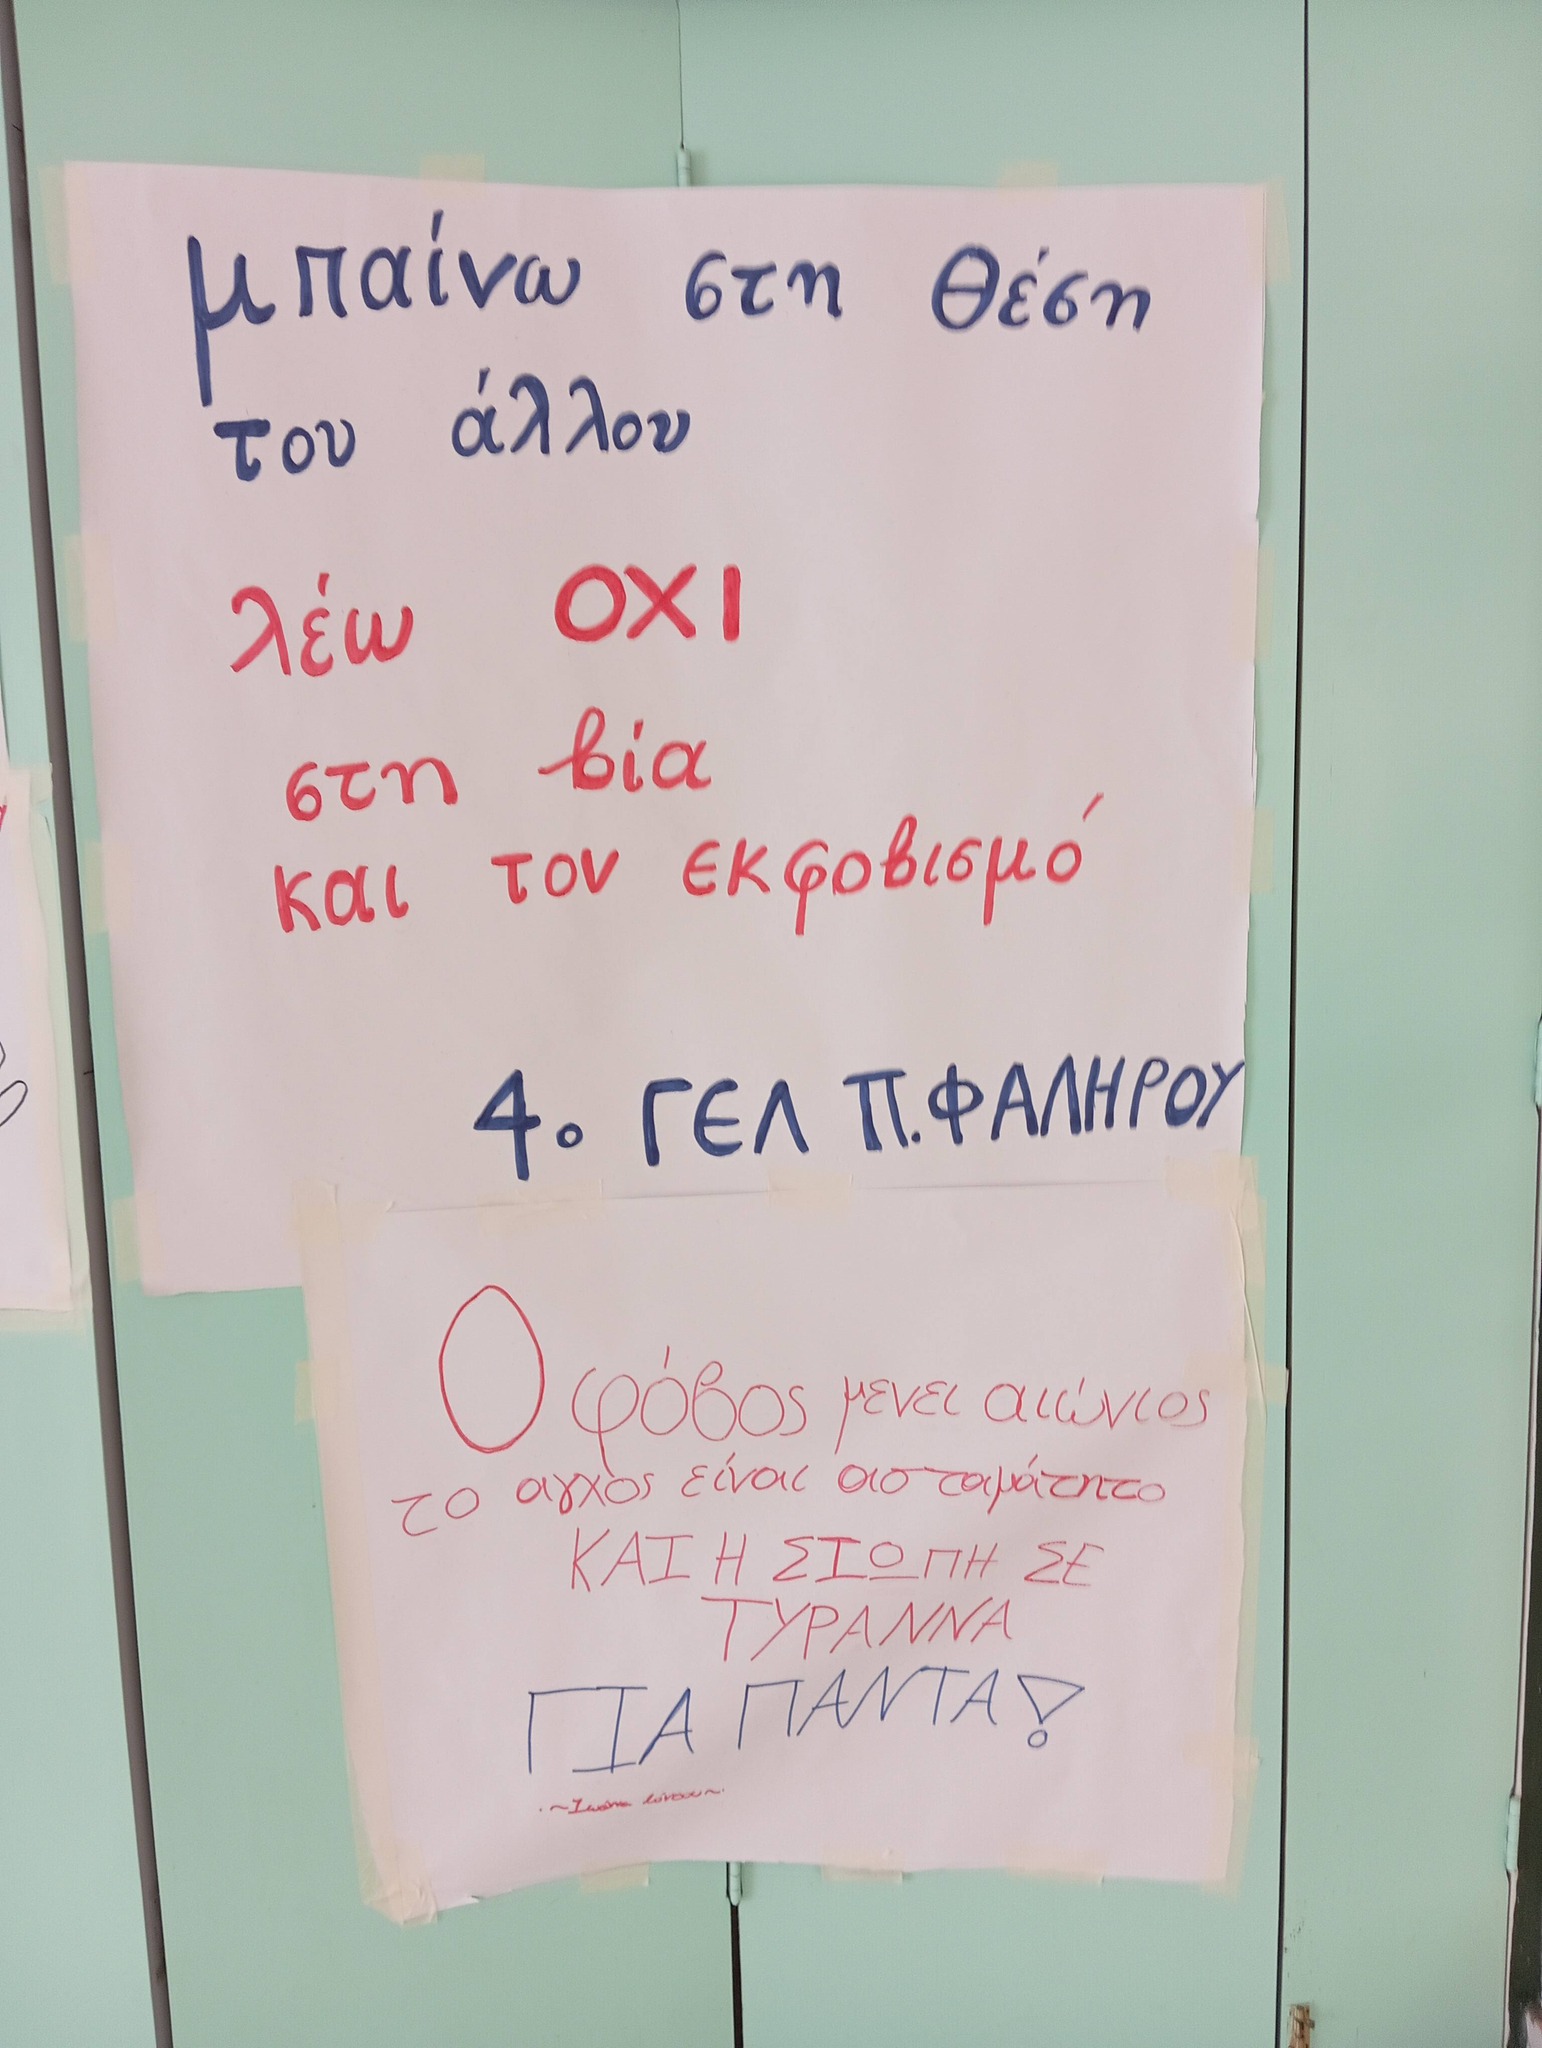 μπαίνω στη θέση
του άλλου
λέω ΟΧΙ
στη βία
και τον εκφοβισμό
4ο ΓΕΛ Π.ΦΑΛΗΡΟΥ
Ο φόβος μενει αιώνιος
το αγχός είναι ασταμάτητο
ΚΑΙ Η ΣΙΩΠΗ ΣΕ
ΤΥΡΑΝΝΑ
ΓΙΑ ΠΑΝΤΑ!